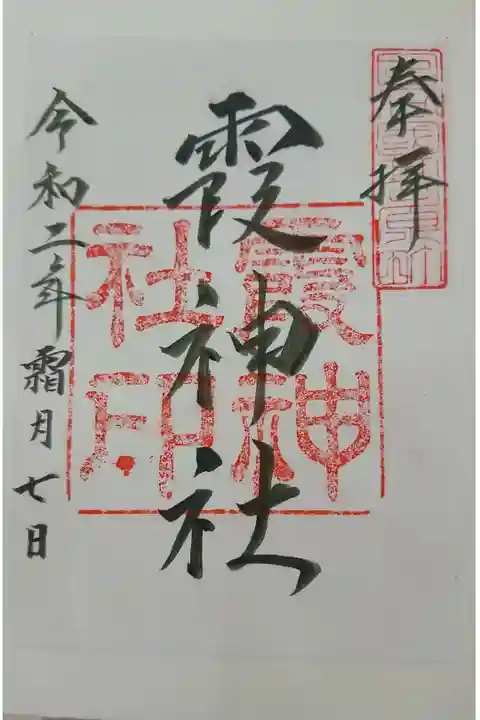 奉拝
霞神社
霞神
社印
令和二年霜月七日